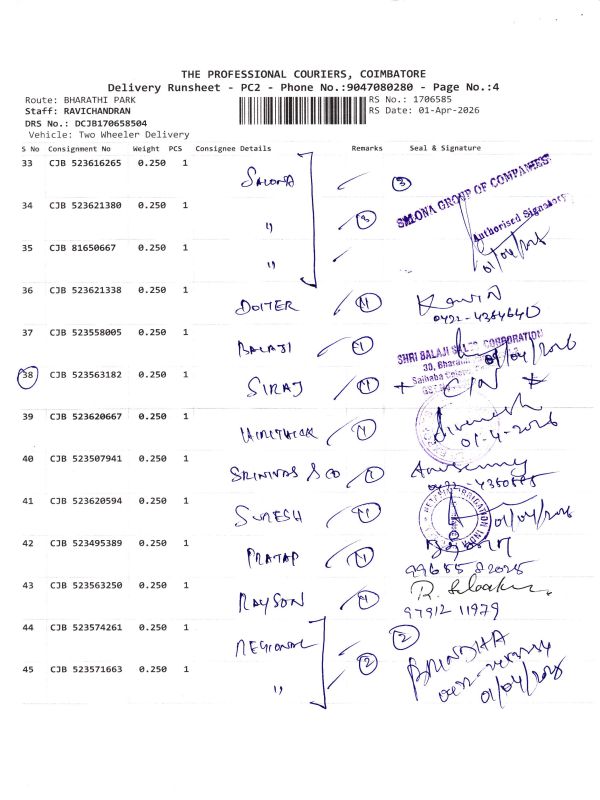 THE PROFESSIONAL COURIERS, COIMBATORE
Delivery Runsheet - PC2 - Phone No.:9047080280 - Page No.:4
Route: BHARATHI PARK
RS No.: 1706585
Staff: RAVICHANDRAN
RS Date: 01-Apr-2026
DRS No.: DCJB170658504
Vehicle: Two Wheeler Delivery
S No Consignment No Weight PCS Consignee Details Remarks Seal & Signature
33 CJB 523616265 0.250 1 SALONA 3
SALONA GROUP OF COMPANIES
34 CJB 523621380 0.250 1 " 3
Authorised Signatory
35 CJB 81650667 0.250 1 "
01/04/2026
36 CJB 523621338 0.250 1 DOITER
37 CJB 523558005 0.250 1 BALAJI
SHRI BALAJI SALES CORPORATION
01/04/2026
38 CJB 523563182 0.250 1 SIRAJ
39 CJB 523620667 0.250 1
01-4-2026
40 CJB 523507941 0.250 1 SRINIVAS & CO
41 CJB 523620594 0.250 1 SURESH
01/04/2026
42 CJB 523495389 0.250 1 PRATAP
99655 82025
43 CJB 523563250 0.250 1 RAYSON
97912 11979
44 CJB 523574261 0.250 1 REGIONAL 2
BRINDHA
45 CJB 523571663 0.250 1 " 2
01/04/2026